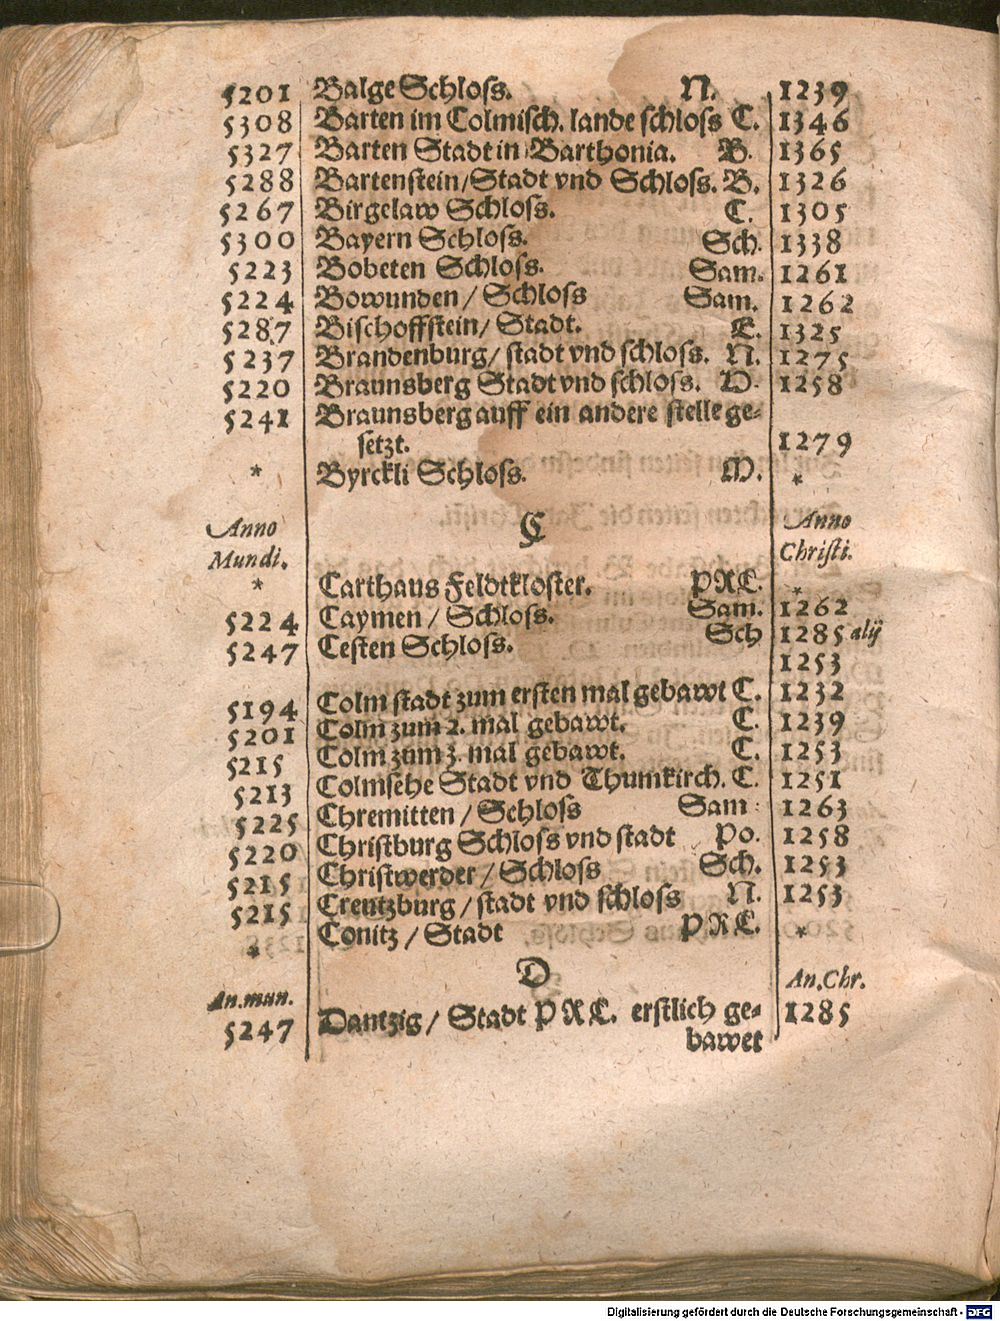 5201 Balge Schloſs. N. 1239
5308 Barten im Colmiſch. lande ſchloſs C. 1346
5327 Barten Stadt in Barthonia. B. 1365
5288 Bartenſtein/Stadt vnd Schloſs. B. 1326
5267 Birgelaw Schloſs. C. 1305
5300 Bayern Schloſs. Sch. 1338
5223 Bobeten Schloſs. Sam. 1261
5224 Bowunden / Schloſs Sam. 1262
5287 Biſchoffſtein/ Stadt. E. 1325
5237 Brandenburg/ ſtadt vnd ſchloſs. N. 1275
5220 Braunsberg Stadt vnd ſchloſs. 1258
5241 Braunsberg auff ein andere ſtelle ge-
ſetzt. 1279
* Byrckli Schloſs. M. *
Anno C Anno
Mundi. Chriſti.
* Carthaus Feldtkloſter. PRC. *
5224 Caymen / Schloſs. Sam. 1262
5247 Ceſten Schloſs. Sch 1285 alij
1253
5194 Colm ſtadt zum erſten mal gebawt C. 1232
5201 Colm zum 2. mal gebawt. C. 1239
5215 Colm zum 3. mal gebawt. C. 1253
5213 Colmſehe Stadt vnd Thumkirch. C. 1251
5225 Chremitten / Schloſs Sam 1263
5220 Chriſtburg Schloſs vnd ſtadt Po. 1258
5215 Chriſtwerder / Schloſs Sch. 1253
5215 Creutzburg / ſtadt vnd ſchloſs N. 1253
* Conitz / Stadt PRC. *
D
An.mun. An.Chr.
5247 Dantzig / Stadt PRC. erſtlich ge- 1285
bawet
Digitalisierung gefördert durch die Deutsche Forschungsgemeinschaft - DFG